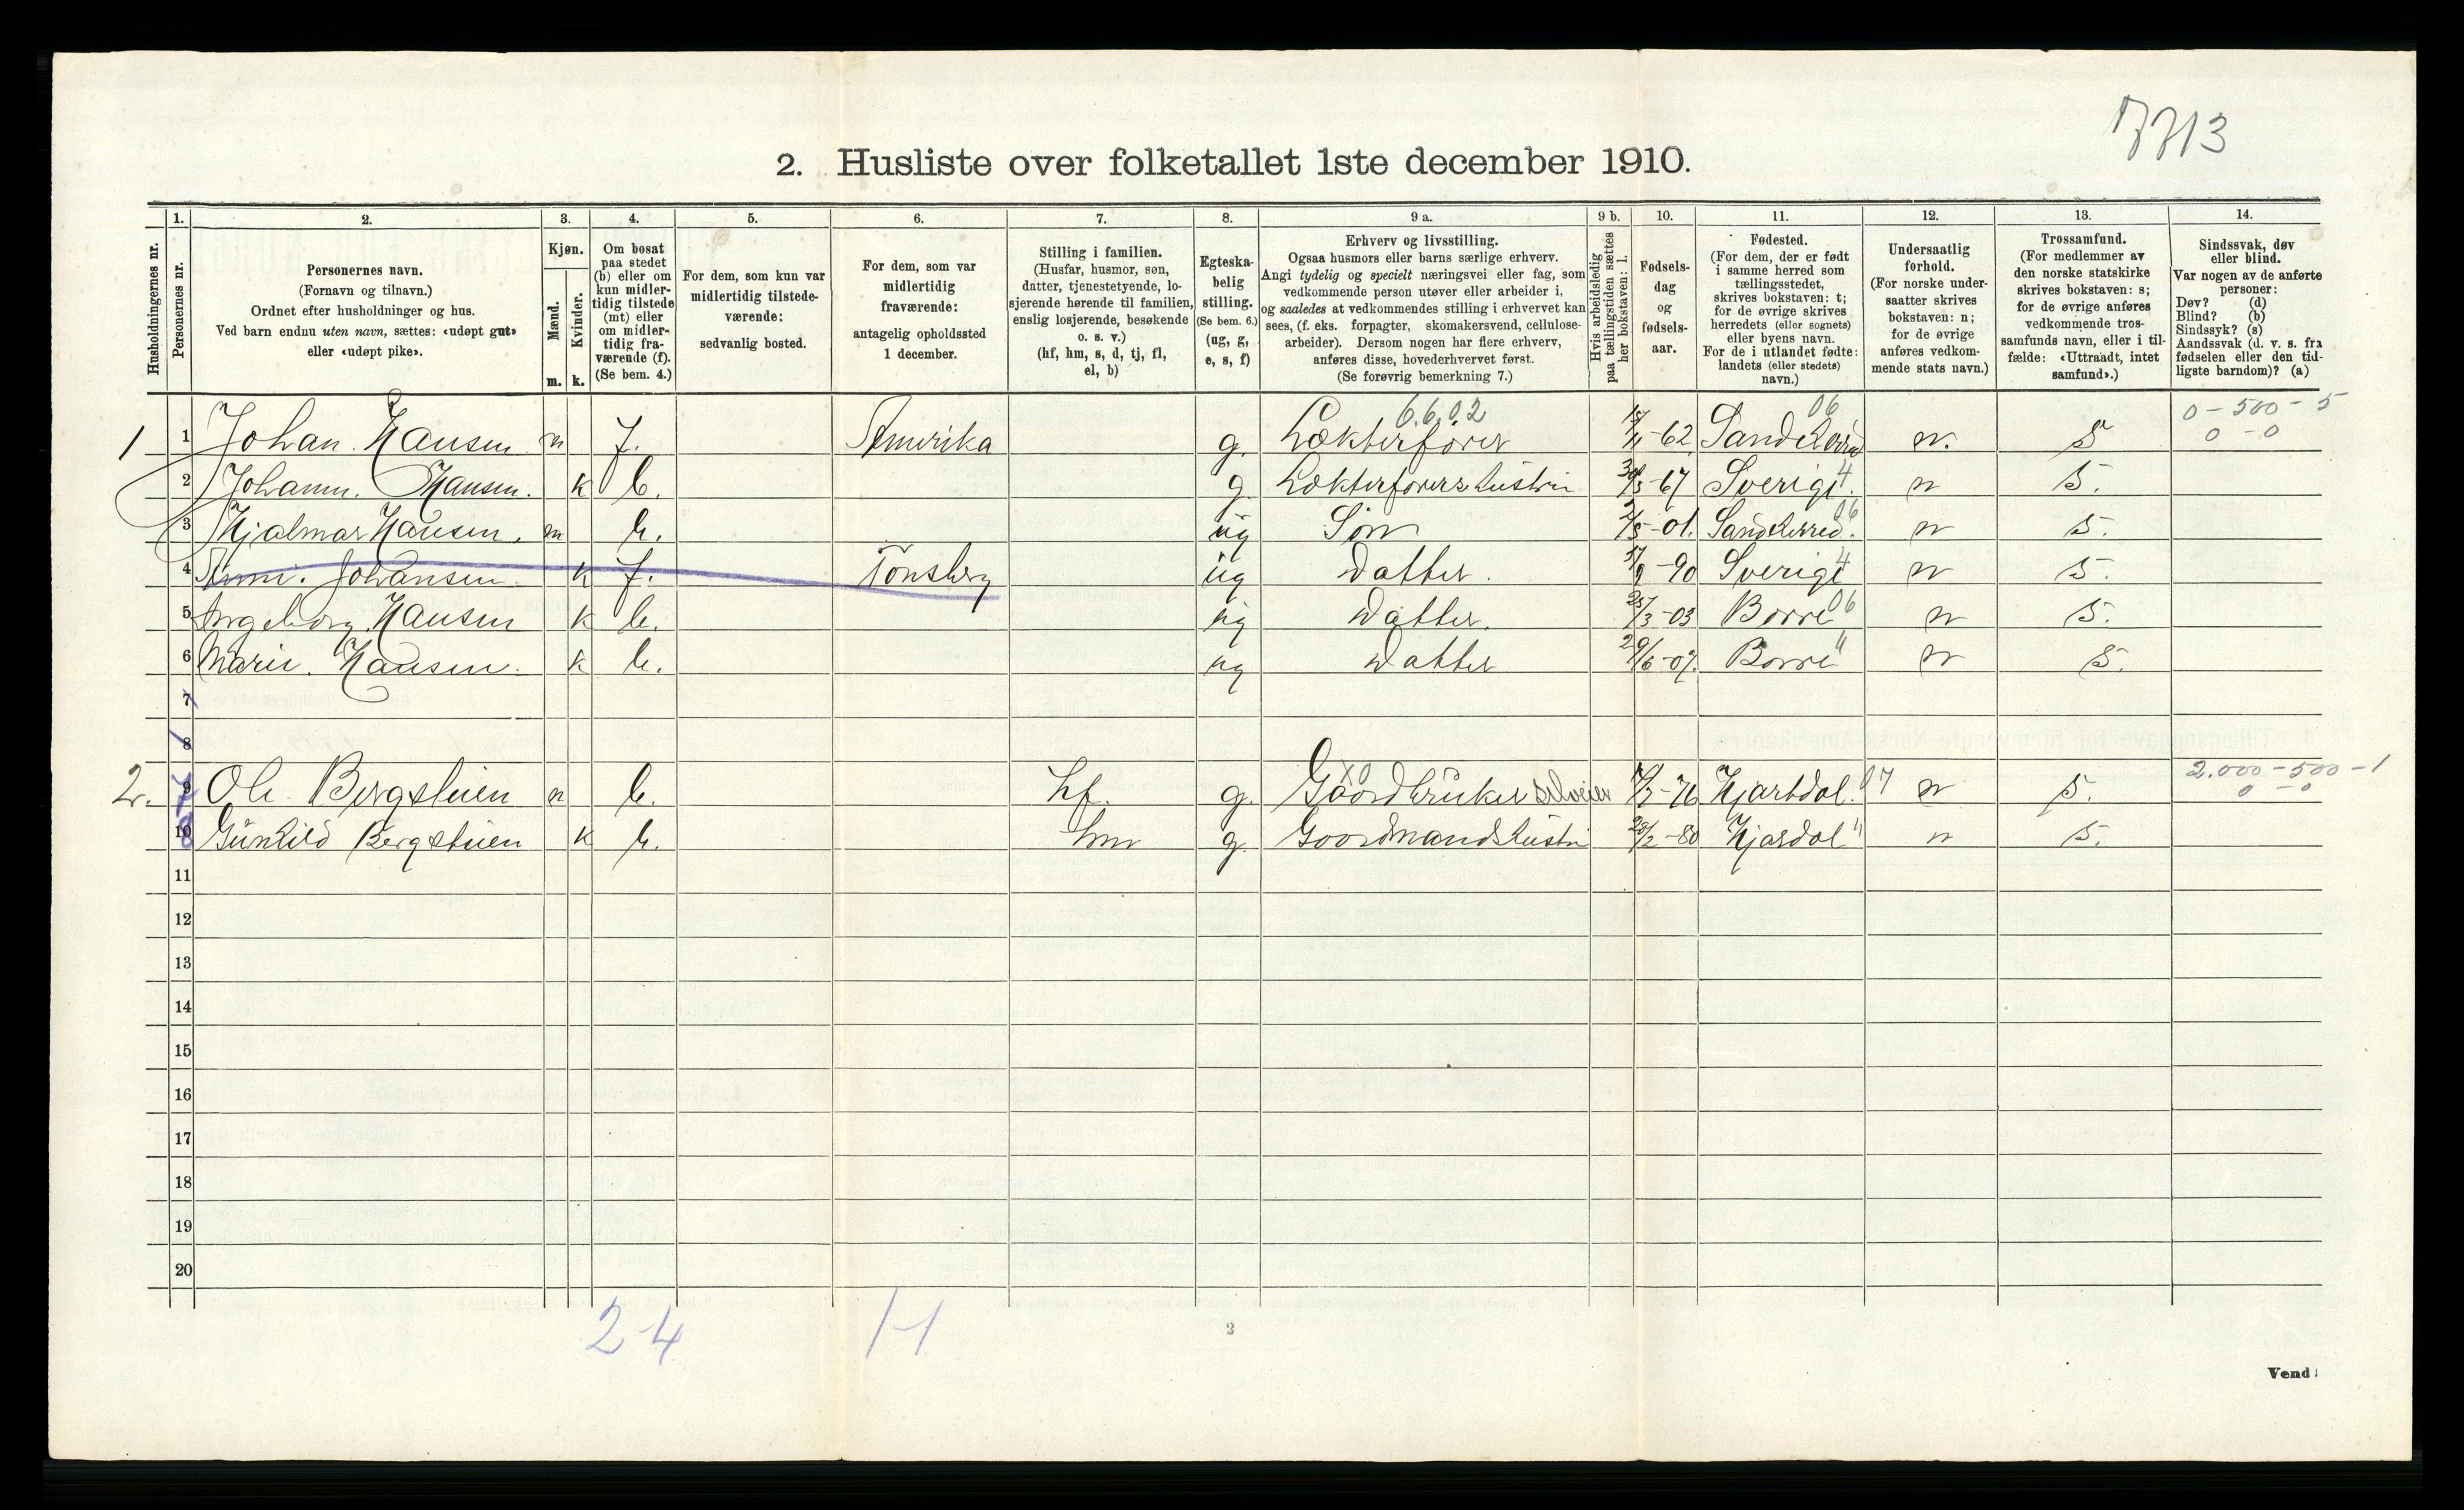 7713
2. Husliste over folketallet 1ste december 1910.
Husholdningernes nr.
1.
Personernes nr.
2.
Personernes navn.
(Fornavn og tilnavn.)
Ordnet efter husholdninger og hus.
Ved barn endnu uten navn, sættes: «udøpt gut»
eller «udøpt pike».
3.
Kjøn.
Mænd.
Kvinder.
m. k.
4.
Om bosat
paa stedet
(b) eller om
kun midler-
tidig tilstede
(mt) eller
om midler-
tidig fra-
værende (f).
(Se bem. 4.)
5.
For dem, som kun var
midlertidig tilstede-
værende:
sedvanlig bosted.
6.
For dem, som var
midlertidig
fraværende:
antagelig opholdssted
1 december.
7.
Stilling i familien.
(Husfar, husmor, søn,
datter, tjenestetyende, lo-
sjerende hørende til familien,
enslig losjerende, besøkende
o. s. v.)
(hf, hm, s, d, tj, fl,
el, b)
8.
Egteska-
belig
stilling.
(Se bem. 6.)
(ug, g,
e, s, f)
9 a.
Erhverv og livsstilling.
Ogsaa husmors eller barns særlige erhverv.
Angi tydelig og specielt næringsvei eller fag, som
vedkommende person utøver eller arbeider i,
og saaledes at vedkommendes stilling i erhvervet kan
sees, (f. eks. forpagter, skomakersvend, cellulose-
arbeider). Dersom nogen har flere erhverv,
anføres disse, hovederhvervet først.
(Se forøvrig bemerkning 7.)
9 b.
Hvis arbeidsledig
paa tællingstiden sættes
her bokstaven: l.
10.
Fødsels-
dag
og
fødsels-
aar.
11.
Fødested.
(For dem, der er født
i samme herred som
tællingsstedet,
skrives bokstaven: t;
for de øvrige skrives
herredets (eller sognets)
eller byens navn.
For de i utlandet fødte:
landets (eller stedets)
navn.)
12.
Undersaatlig
forhold.
(For norske under-
saatter skrives
bokstaven: n;
for de øvrige
anføres vedkom-
mende stats navn.)
13.
Trossamfund.
(For medlemmer av
den norske statskirke
skrives bokstaven: s;
for de øvrige anføres
vedkommende tros-
samfunds navn, eller i til-
fælde: «Uttraadt, intet
samfund».)
14.
Sindssvak, døv
eller blind.
Var nogen av de anførte
personer:
Døv? (d)
Blind? (b)
Sindssyk? (s)
Aandssvak (d. v. s. fra
fødselen eller den tid-
ligste barndom)? (a)
6.6.02 06 0 - 500 - 5
1 1 Johan Hansen m f. Amerika g. Lækterfører 18/11-62 Sandeherred n. S 0 - 0
2 Johann. Hansen. k b. g Lækterførers hustru 30/3-67 Sverige 4 n S.
3 Hjalmar Hansen. m b. ug Søn 2/5-01. Sandeherred. 06 n S.
4 Anni. Johansen k f. Tönsberg ug Datter. 17/9-90 Sverige 4 n S.
5 Ingeborg Hansen k b. ug Datter. 25/3-03 Borre 06 n S.
6 Marie. Hansen. k b. ug Datter 29/6-07. Borre " n S.
7
8
2. 9 7 Ole Bergstuen m b. hf. g. Gaardbruker selveier X0 -76 Hjartdal. 07 n S. 2.000 - 500 - 1
0 - 0
10 8 Günhild Bergstuen k b. hm g. Goordmandshustru 28/2-80 Hjardal " n S.
11
12
13
14
15
16
17
18
19
20
2-4 1-1
3
Vend!